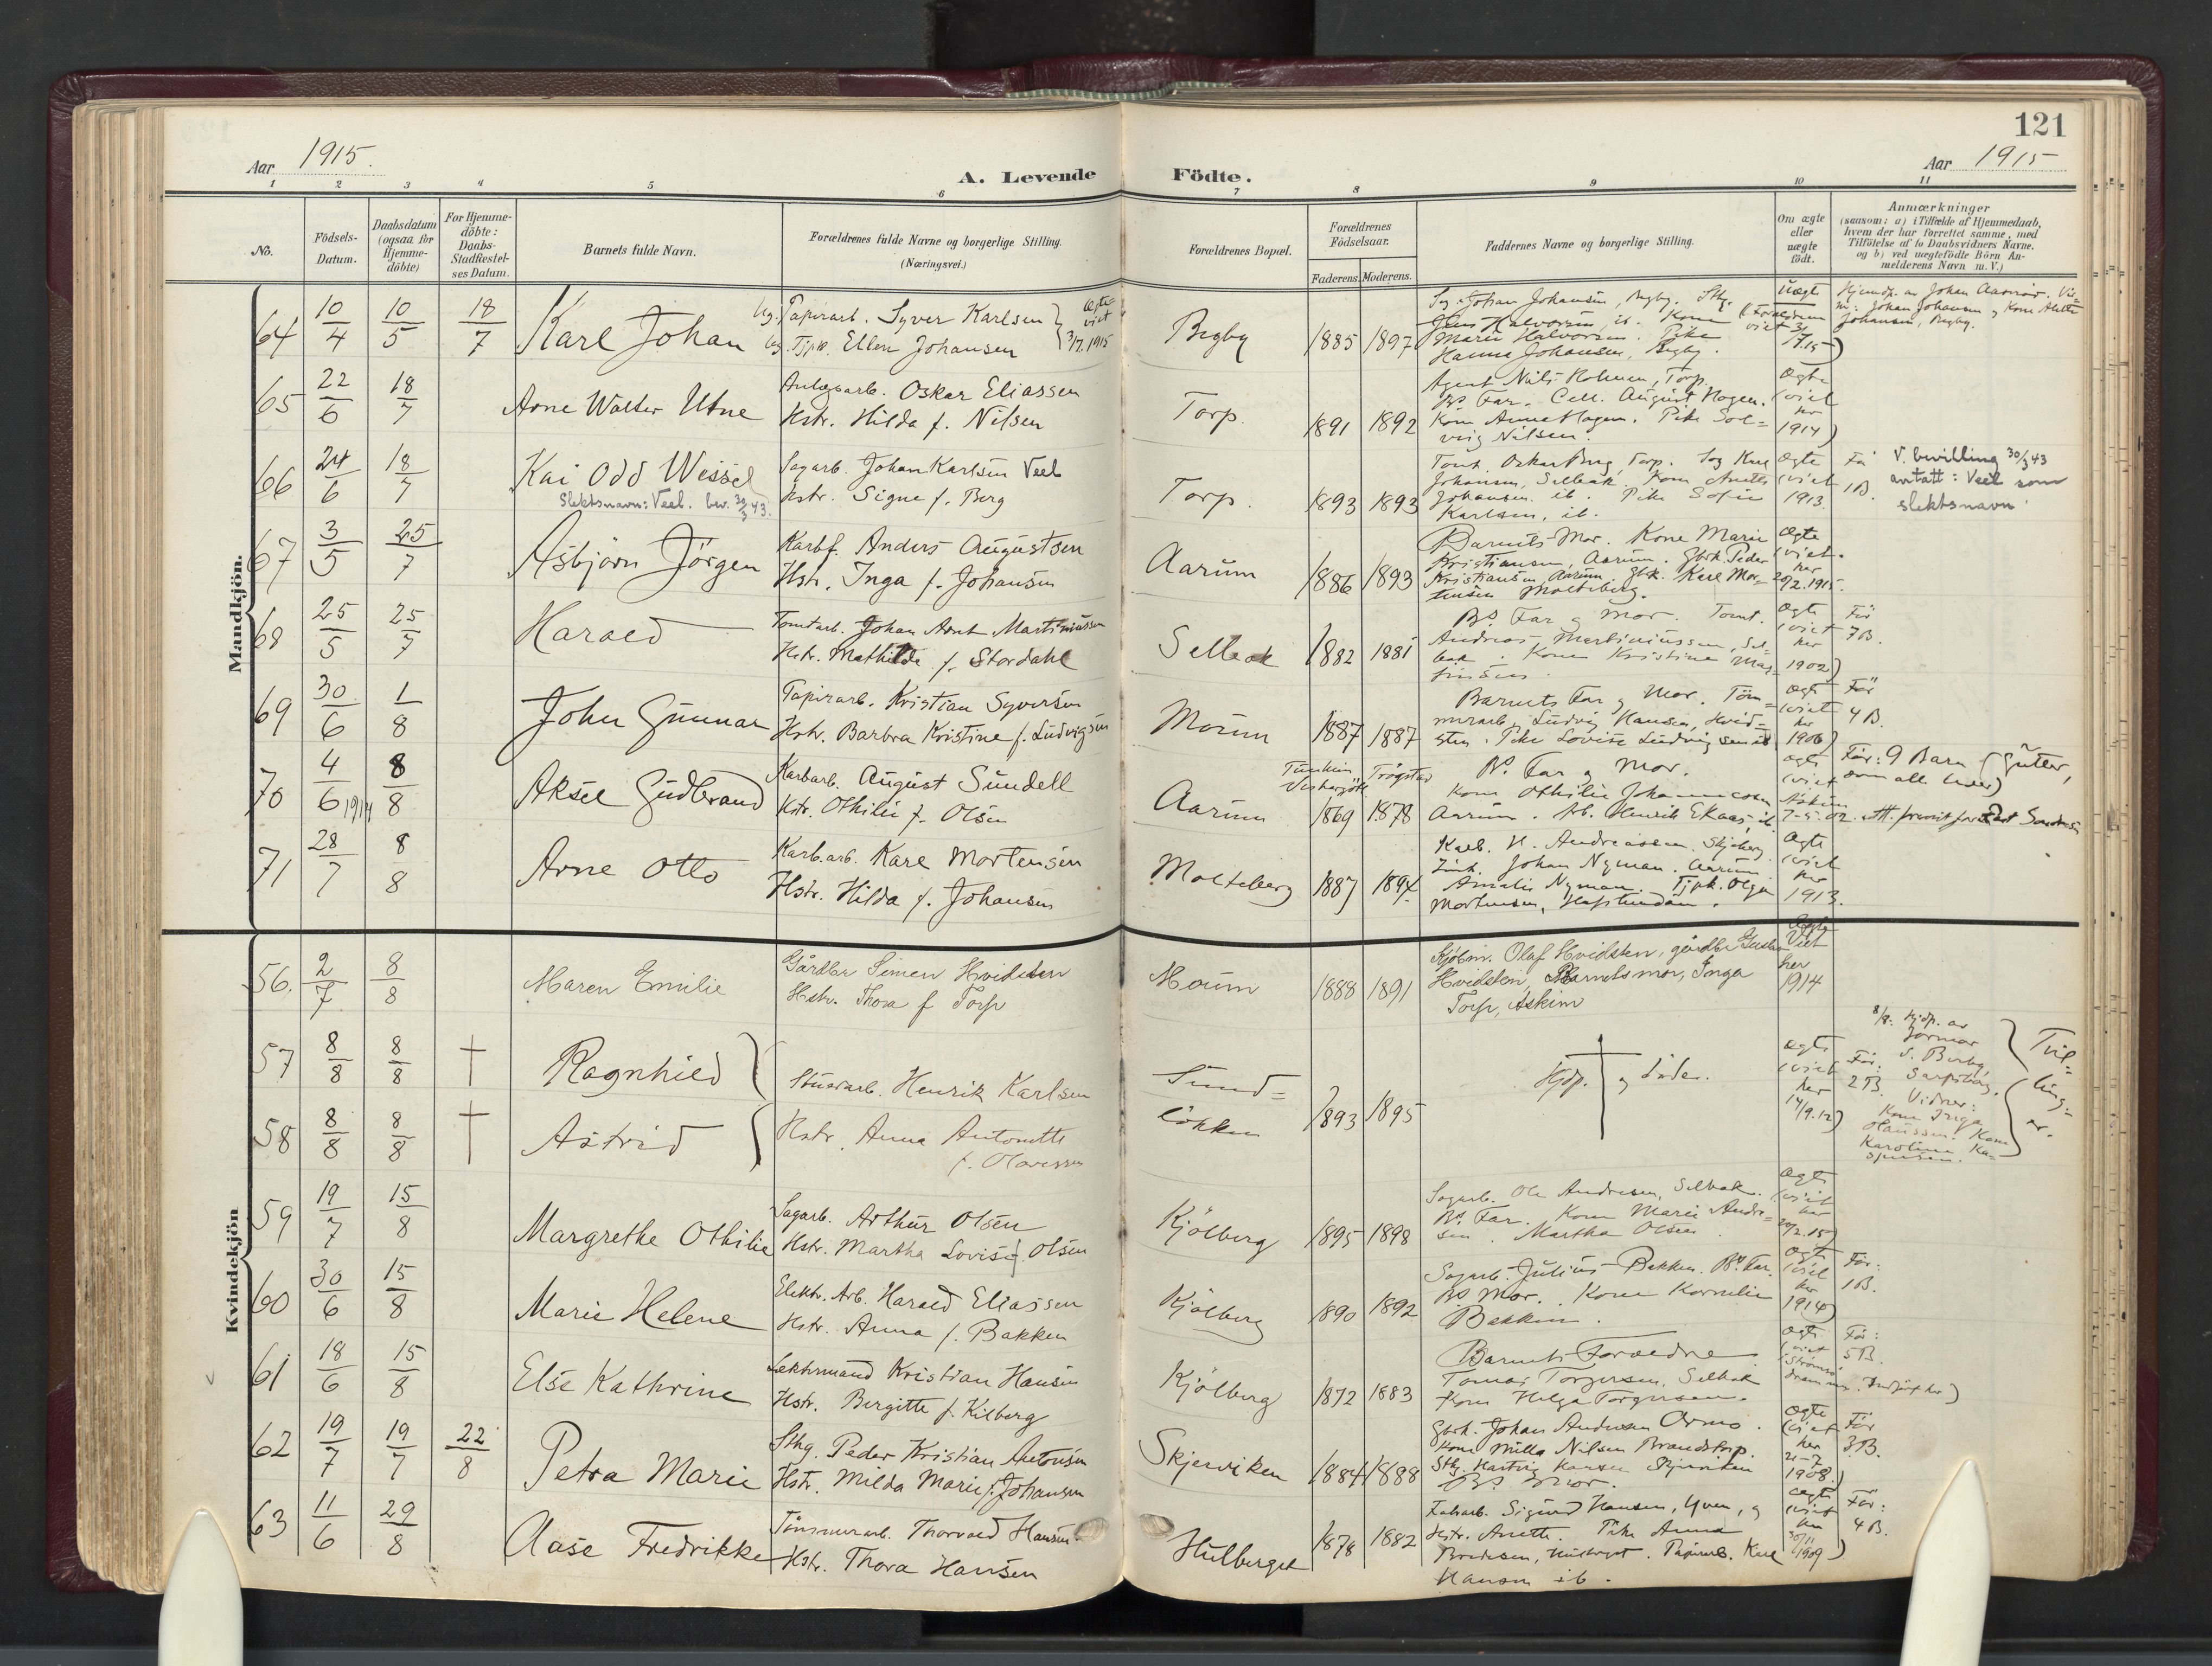 121
Aar 1915.
Aar 1915
A. Levende Födte.
1 2 3 4 5 6 7 8 9 10 11
No.
Födsels-
Datum.
Daabsdatum
(ogsaa for
Hjemme-
döbte)
For Hjemme-
döbte:
Daabs-
Stadfæstel-
ses Datum.
Barnets fulde Navn.
Forældrenes fulde Navne og borgerlige Stilling.
(Næringsvei.)
Forældrenes Bopæl.
Forældrenes
Födselsaar.
Faderens. Moderens.
Faddernes Navne og borgerlige Stilling.
Om ægte
eller
uægte
födt.
Anmærkninger
(saasom: a) i Tilfælde af Hjemmedaab,
hvem der har forrettet samme, med
Tilföielse af to Daabsvidners Navne.
og b) ved uægtefödte Börn An-
melderens Navn m. V.)
Mandkjön.
64 10/4 10/5 18/7 Karl Johan
Ug. Papirarb. Syver Karlsen
Ug. Tjp. Ellen Johansen
viet 3/7 1915
Bygby 1885 1897
Johan Johansen, Bygby.
Halvorsen, ib. Kone
Marie Halvorsen. Pike
Hanna Johansen, Bygby.
Uægt
Johan Johansen og Kone
Johansen, Bygby.
65 22/6 18/7 Arne Walter Utne
Anlægsarb. Oskar Eliassen
Hstr. Hilda f. Nilsen
Torp. 1891 1892
Agent Nils Holmen, Torp.
Bs Far. Cell. August Hagen.
Kone Anna Hagen. Pike Sol-
veig Nilsen.
Ægte
(viet
her
1914)
66 24/6 18/7 Kai Odd Wessel
Slektsnavn: Veel. bev. 30/3 43.
Sagarb. Johan Karlsen Veel
Hstr. Signe f. Berg
Torp. 1893 1893
Tomt. Oskar Berg, Torp. Sag Karl
Johansen, Selbak. Kone Anette
Johansen ib. Pike Sofie
Karlsen, ib.
Ægte
(viet
1913.
Før
1B.
V. bevilling 30/3 43
antatt: Veel som
slektsnavn
67 3/5 25/7 Asbjörn Jörgen
Karbf. Anders Augustsen
Hstr. Inga f. Johansen
Aarum 1886 1893
Barnets Mor. Kone Marie
Kristiansen, Aarum. Gbrk. Peder
Kristiansen, Aarum. Gbk. Karl Mor-
tensen Molteberg.
Ægte
(viet
her
20/2.1915.
68 25/5 25/7 Harald
Tomtarb. Johan Arnt Martiniussen
Hstr. Mathilde f. Stordahl
Selbak 1882 1881
Bs. Far og Mor. Tomt.
Andreas Martiniussen, Sel-
bak. Kone Kristine Mar-
tinsen.
Ægte
(viet
her
1902)
Før
7B.
69 30/6 1/8 John Gunnar
Papirarb. Kristian Syversen
Hstr. Barbra Kristine f. Ludvigsen
Moum 1887 1887
Barnets Far og Mor. Töm-
merarb. Ludvig Hansen, Hvid-
sten. Pike Lovise Ludvigsen ib
Ægte
(viet
her
1906)
Før
4 B.
70 4/6 1914 8/8 Aksel Gudbrand
Karbarb. August Sundell
Hstr. Othilie f. Olsen
Aarum 1869 1878
Trøgstad
Bs. Far og Mor.
Kone Othilie Johannessen
Aarum. Arb. Henrik Ekaas, ib.
Ægte
(viet
Askim
7-5.02.
Før: 9 Barn (Gutter,
som alle lever)
71 28/7 8/8 Arne Otto
Karb.arb. Karl Mortensen
Hstr. Hilda f. Johansen
Molteberg 1887 1894
Karb. H. Andreassen. Skjeberg.
Johan Nyman. Aarum
Amalie Nyman. Tjpk. Olga
Mortensen, Hafslundsm.
Ægte
(viet
her
1913.
Kvindekjön
56. 2/7 8/8 Maren Emilie
Gårdbr Simen Hvidsten
Hstr. Thora f Torp
Moum 1888 1891
Kjöbm. Olaf Hvidsten, gårdbr Gustav
Hvidsten, Barnets mor, Inga
Torp, Askim
Ægte
Viet
her
1914
57 8/8 8/8 † Ragnhild
58 8/8 8/8 † Astrid
Stuerarb. Henrik Karlsen
Hstr. Anna Antonette
f. Olavesen
Sund-
lökken 1893 1895
Hjdp. og döde.
Ægte
(viet
her
14/9.12)
Før.
2B.
8/8: Hjdp. av
Jormor
Sarpsborg.
Vidner:
Kone Inga
Olaussen. Kone
Karoline Ka-
Tvil-
ling-
er.
59 19/7 15/8 Margrethe Othilie
Sagarb. Arthur Olsen
Hstr. Martha Lovise f. Olsen
Kjölberg 1895 1898
Sagarb. Ole Andresen, Selbak.
Bs. Far. Kone Marie Andre-
sen. Martha Olsen
Ægte
(viet
her
20/2.15)
60 30/6 15/8 Marie Helene
Elektr. Arb. Harald Eliassen
Hstr. Anna f. Bakken
Kjölberg 1890 1892
Sagarb. Julius Bakken. Bs. Far.
Bs Mor. Kone Kornelia
Bakken.
Ægte
(viet
her
1914)
Før:
1B.
61 18/6 15/8 Else Kathrine
Lektermand Kristian Hansen
Hstr. Bergitte f. Kilberg
Kjölberg 1872 1883
Barnets Foreldre
Tomas Torgersen. Selbak
Kone Helga Torgersen.
Ægte
(viet
Strømsö
Drammen.
Før:
5B.
62 19/7 19/7 22/8 Petra Marie
Sthg. Peder Kristian Antonsen
Hstr. Milda Marie f. Johansen
Skjærviken 1884 1888
Gbrk. Johan Andersen Ormo.
Kone Milla Nilsen Brandstorp.
Sthg. Hartvig Hansen Skjærviken
Bs. Mor.
Ægte
(viet
her
21-7
1908.)
Før
3B.
63 11/6 29/8 Aase Fredrikke
Tömmerarb. Thorvald Hansen
Hstr. Thora Hansen
Hulberget 1878 1882
Fabarb. Sigurd Hansen, Yven, og
Hstr. Anette. Pike Anna
Karl
Hansen ib.
Ægte
(viet
her
30/11
1909)
Før:
4 B.